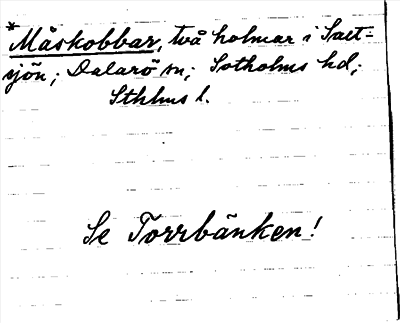 *Måskobbar, två holmar i Salt-
sjön; Dalarö sn; Sotholms hd;
Sthlms l.
Se Torrbänken!